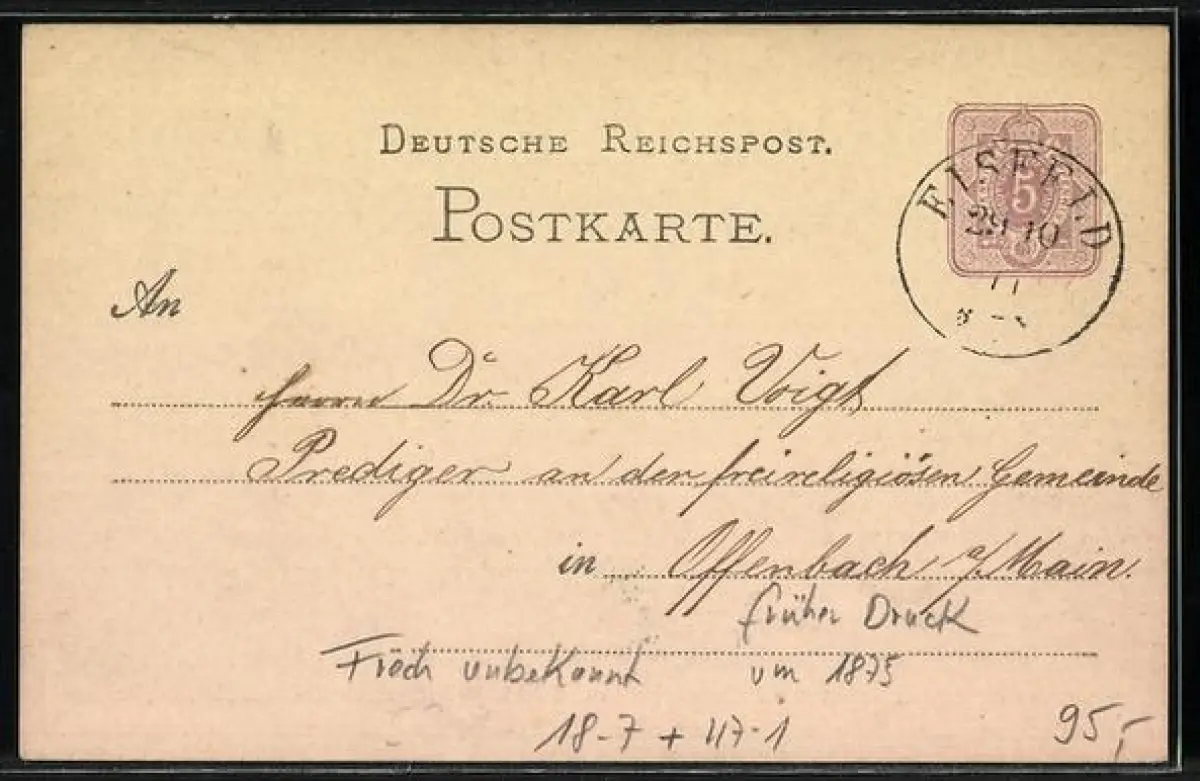 DEUTSCHE REICHSPOST.
POSTKARTE.
5
EISFELD
29 10
An
Herrn Dr. Karl Voigt
Prediger an der freireligiösen Gemeinde
in Offenbach a/Main.
früher Druck
Frech unbekannt um 1875
18-7 + 117-1
95,-